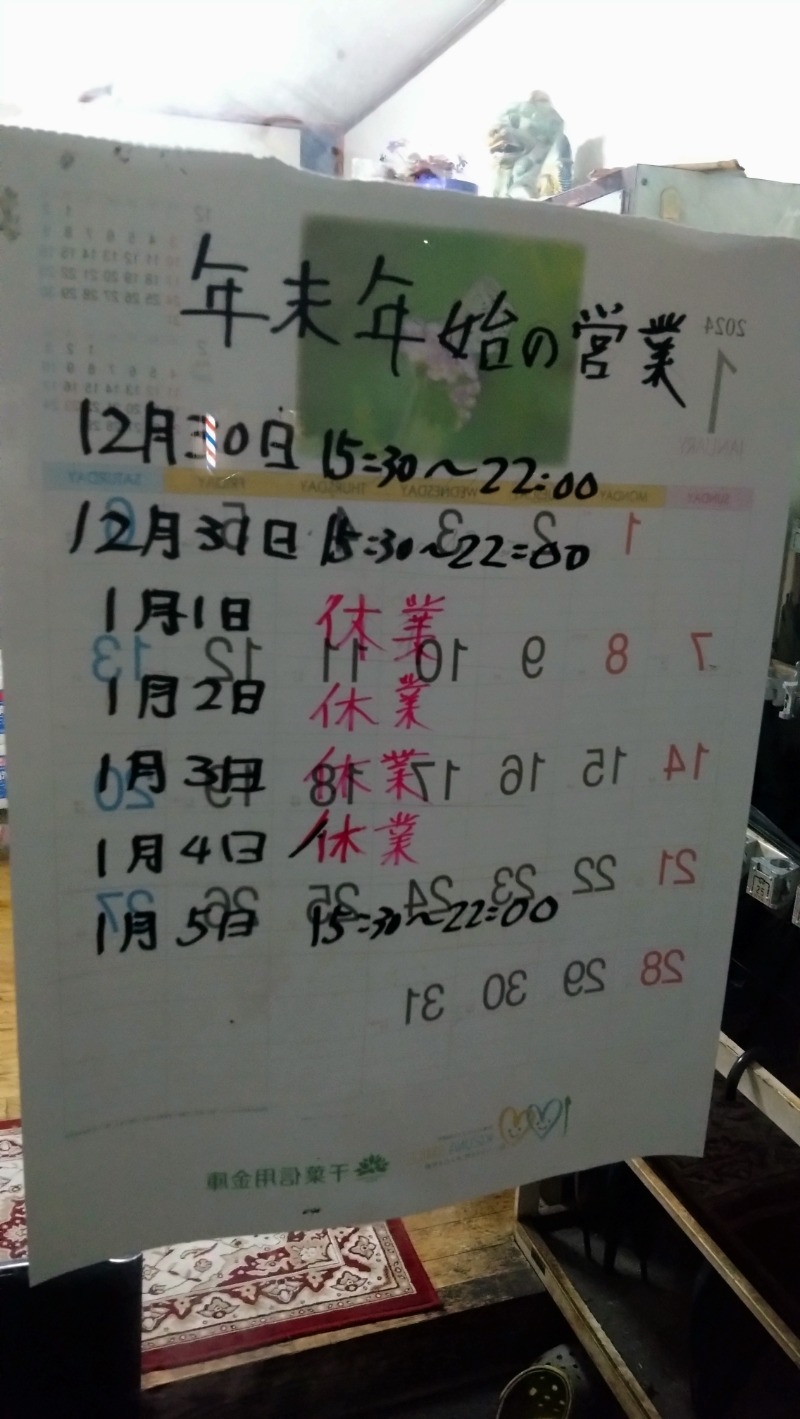 年末年始の営業
12月30日 15:30～22:00
12月31日 15:30～22:00
1月1日 休業
1月2日 休業
1月3日 休業
1月4日 休業
1月5日 15:30～22:00
2024
1
JANUARY
SUNDAY MONDAY WEDNESDAY THURSDAY FRIDAY SATURDAY
1 2 3 4 5 6
7 8 9 10 11 12 13
14 15 16 17 18 19 20
21 22 23 24 25 26 27
28 29 30 31
千葉信用金庫